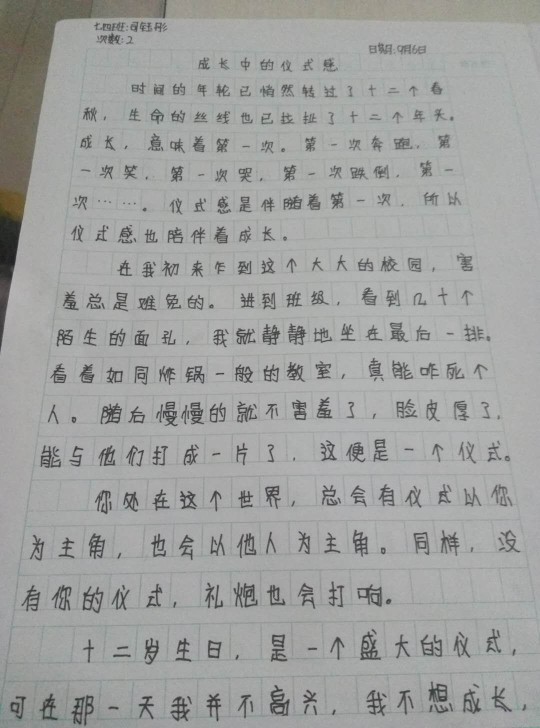 七四班:司钰彤
次数:2
日期:9月6日
成长中的仪式感
时间的年轮已悄然转过了十二个春
秋,生命的丝线也已拉扯了十二个年头。
成长,意味着第一次。第一次奔跑,第
一次笑,第一次哭,第一次跌倒,第一
次……。仪式感是伴随着第一次,所以
仪式感也陪伴着成长。
在我初来乍到这个大大的校园,害
羞总是难免的。进到班级,看到几十个
陌生的面孔,我就静静地坐在最后一排。
看着如同炸锅一般的教室,真能咋死个
人。随后慢慢的就不害羞了,脸皮厚了,
能与他们打成一片了,这便是一个仪式。
你处在这个世界,总会有仪式以你
为主角,也会以他人为主角。同样,没
有你的仪式,礼炮也会打响。
十二岁生日,是一个盛大的仪式,
可在那一天我并不高兴,我不想成长,